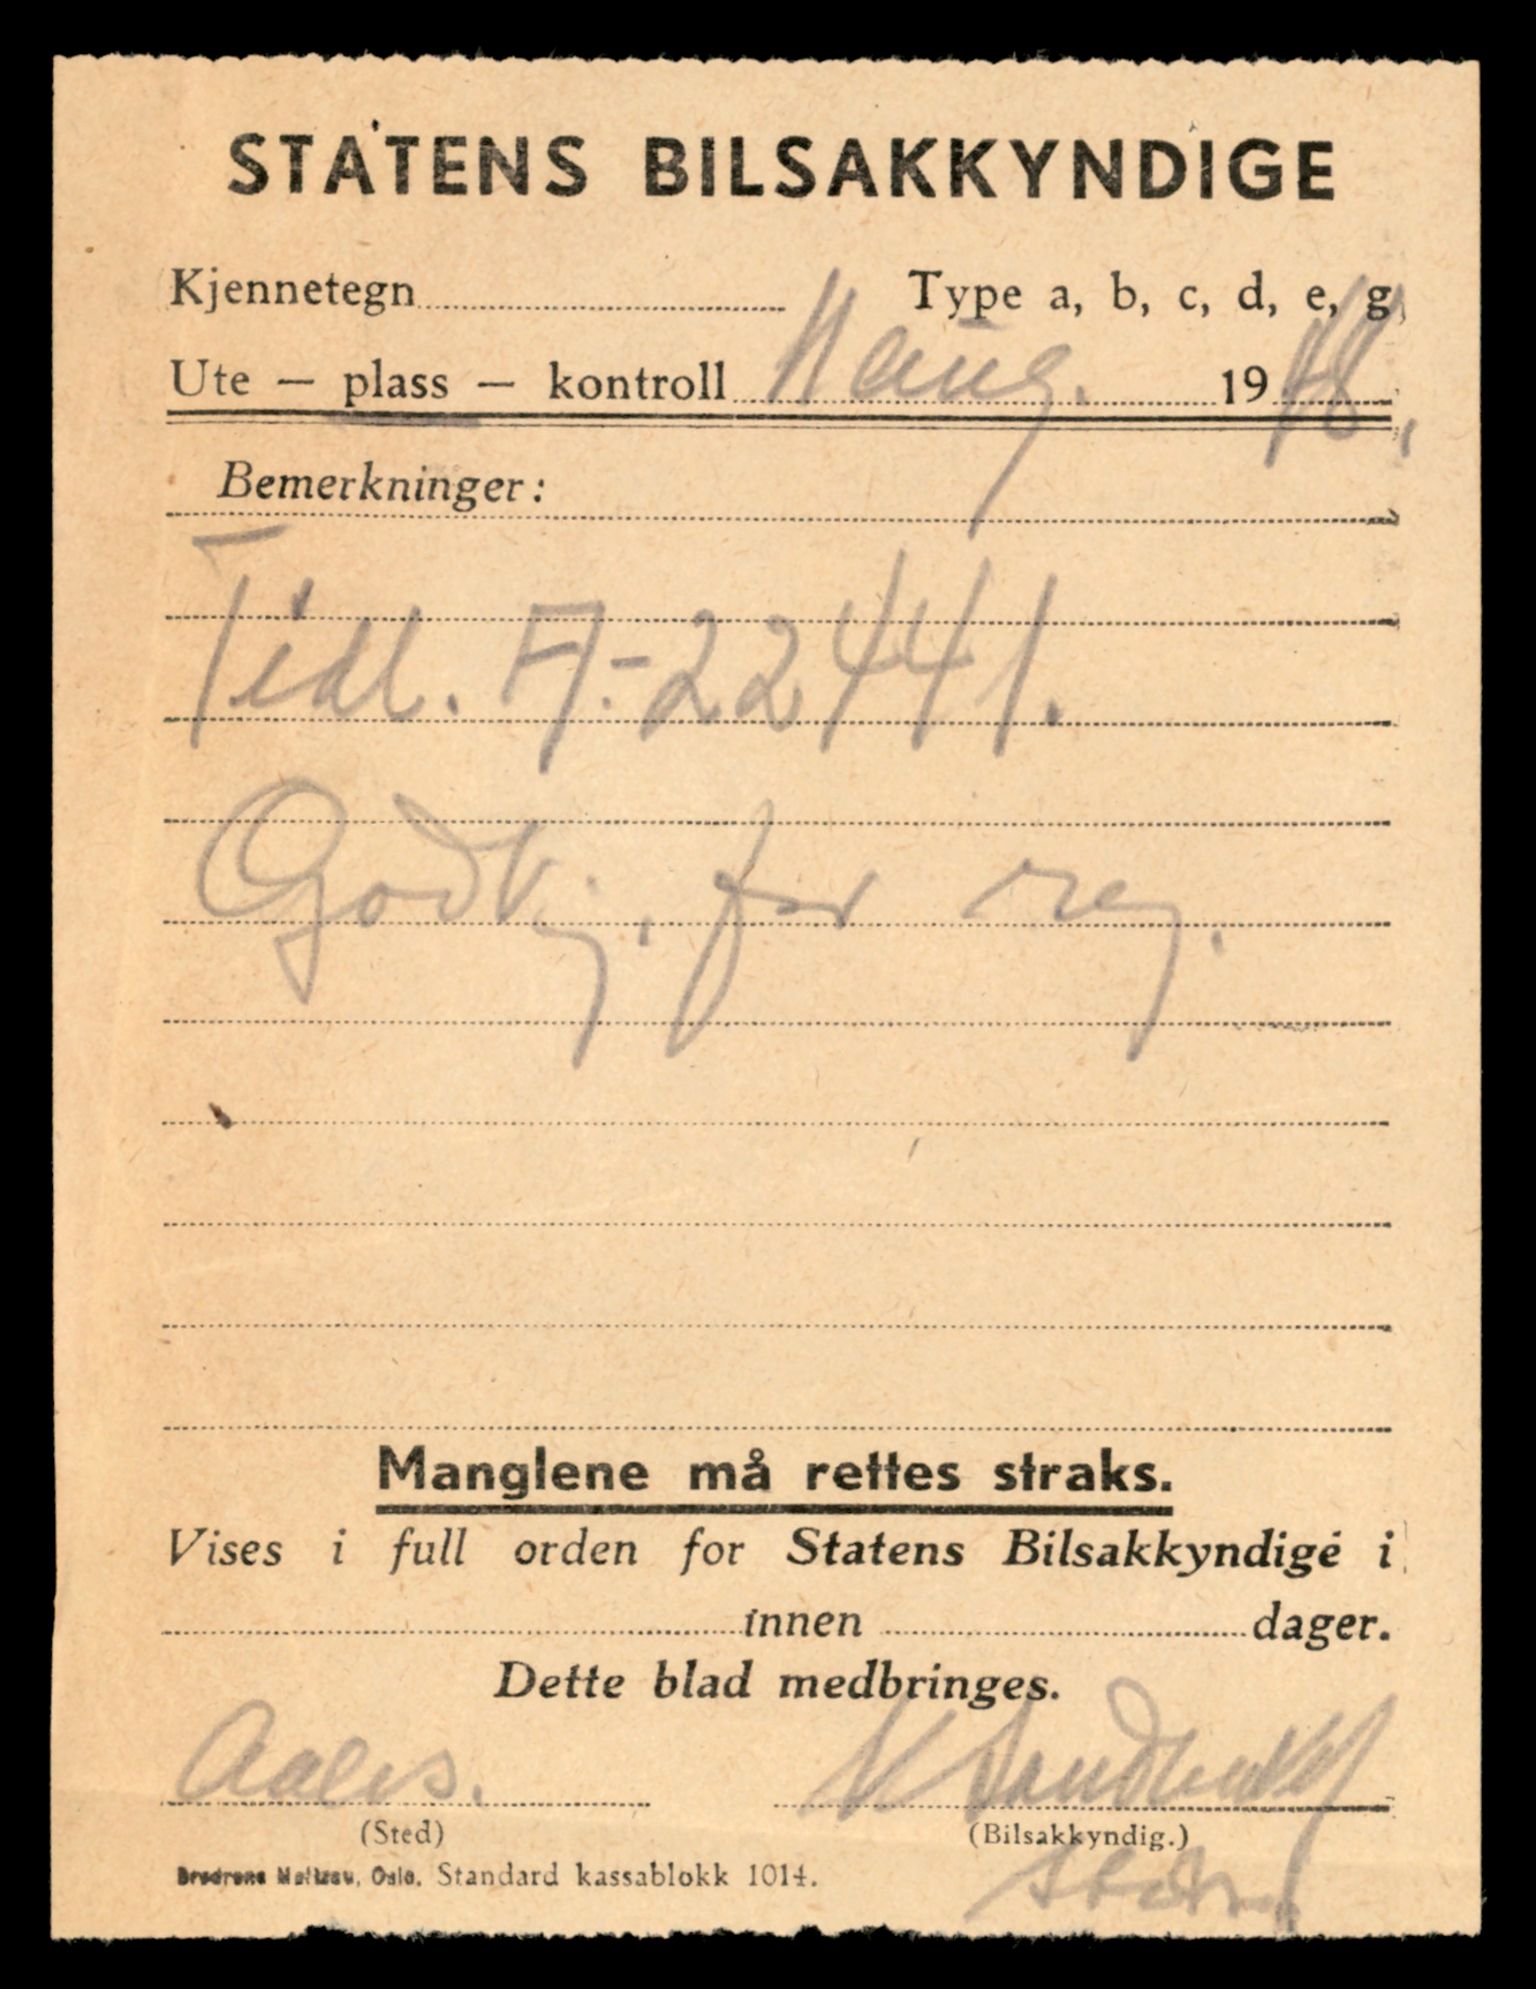 STATENS BILSAKKYNDIGE
Kjennetegn Type a, b, c, d, e, g
Ute — plass — kontroll 11 aug. 1948.
Bemerkninger:
Tidl. A.-22441.
Godkj. for reg.
Manglene må rettes straks.
Vises i full orden for Statens Bilsakkyndige i
innen dager.
Dette blad medbringes.
Aales.
(Sted) (Bilsakkyndig.)
Oslo. Standard kassablokk 1014.